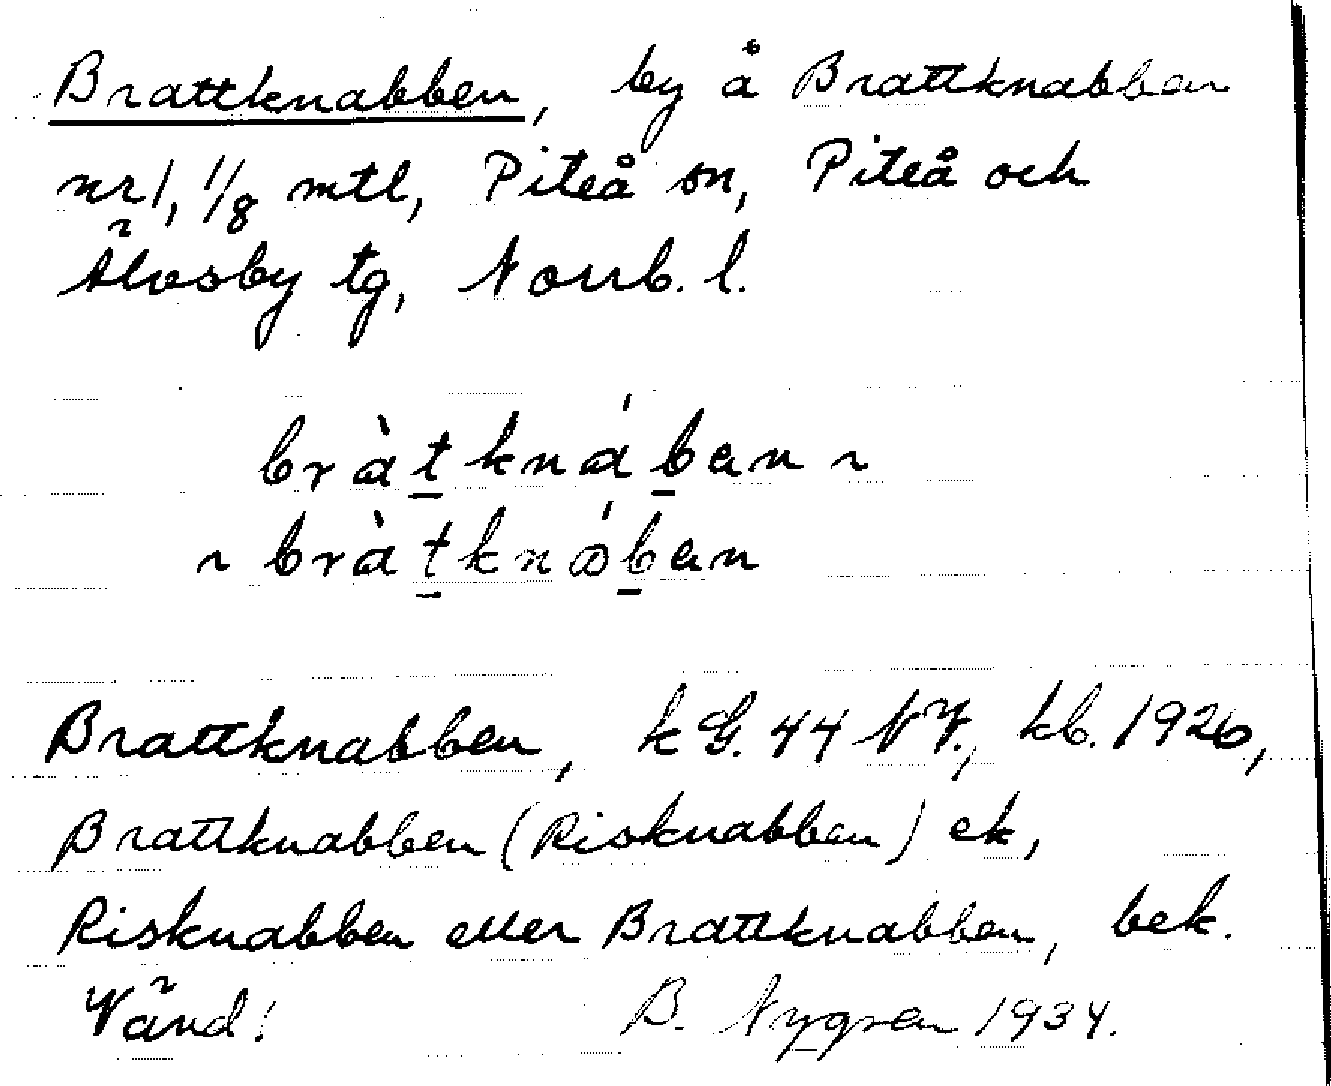 Brattknabben, by å Brattknabben
nr 1, 1/8 mtl, Piteå sn, Piteå och
Älvsby tg, Norrb. l.
bràtknáben ~
~ bràtknáben
Brattknabben, k G. 44 NV., kb. 1926,
Brattknabben (Risknabben) ek,
Risknabben eller Brattknabben, bek.
Vänd! B. Nygren 1934.